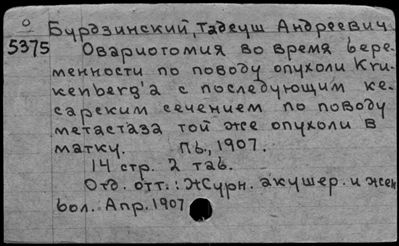 Бурдзинский, Тадеуш Андреевич.
5375
Овариотомия во время бере-
менности по поводу опухоли Kru-
kenberg'a с последующим ке-
сарским сечением по поводу
метастаза той же опухоли в
матку. Пб., 1907.
14 стр. 2 таб.
Отд. отт.: Журн. акушер. и жен
бол. Апр. 1907